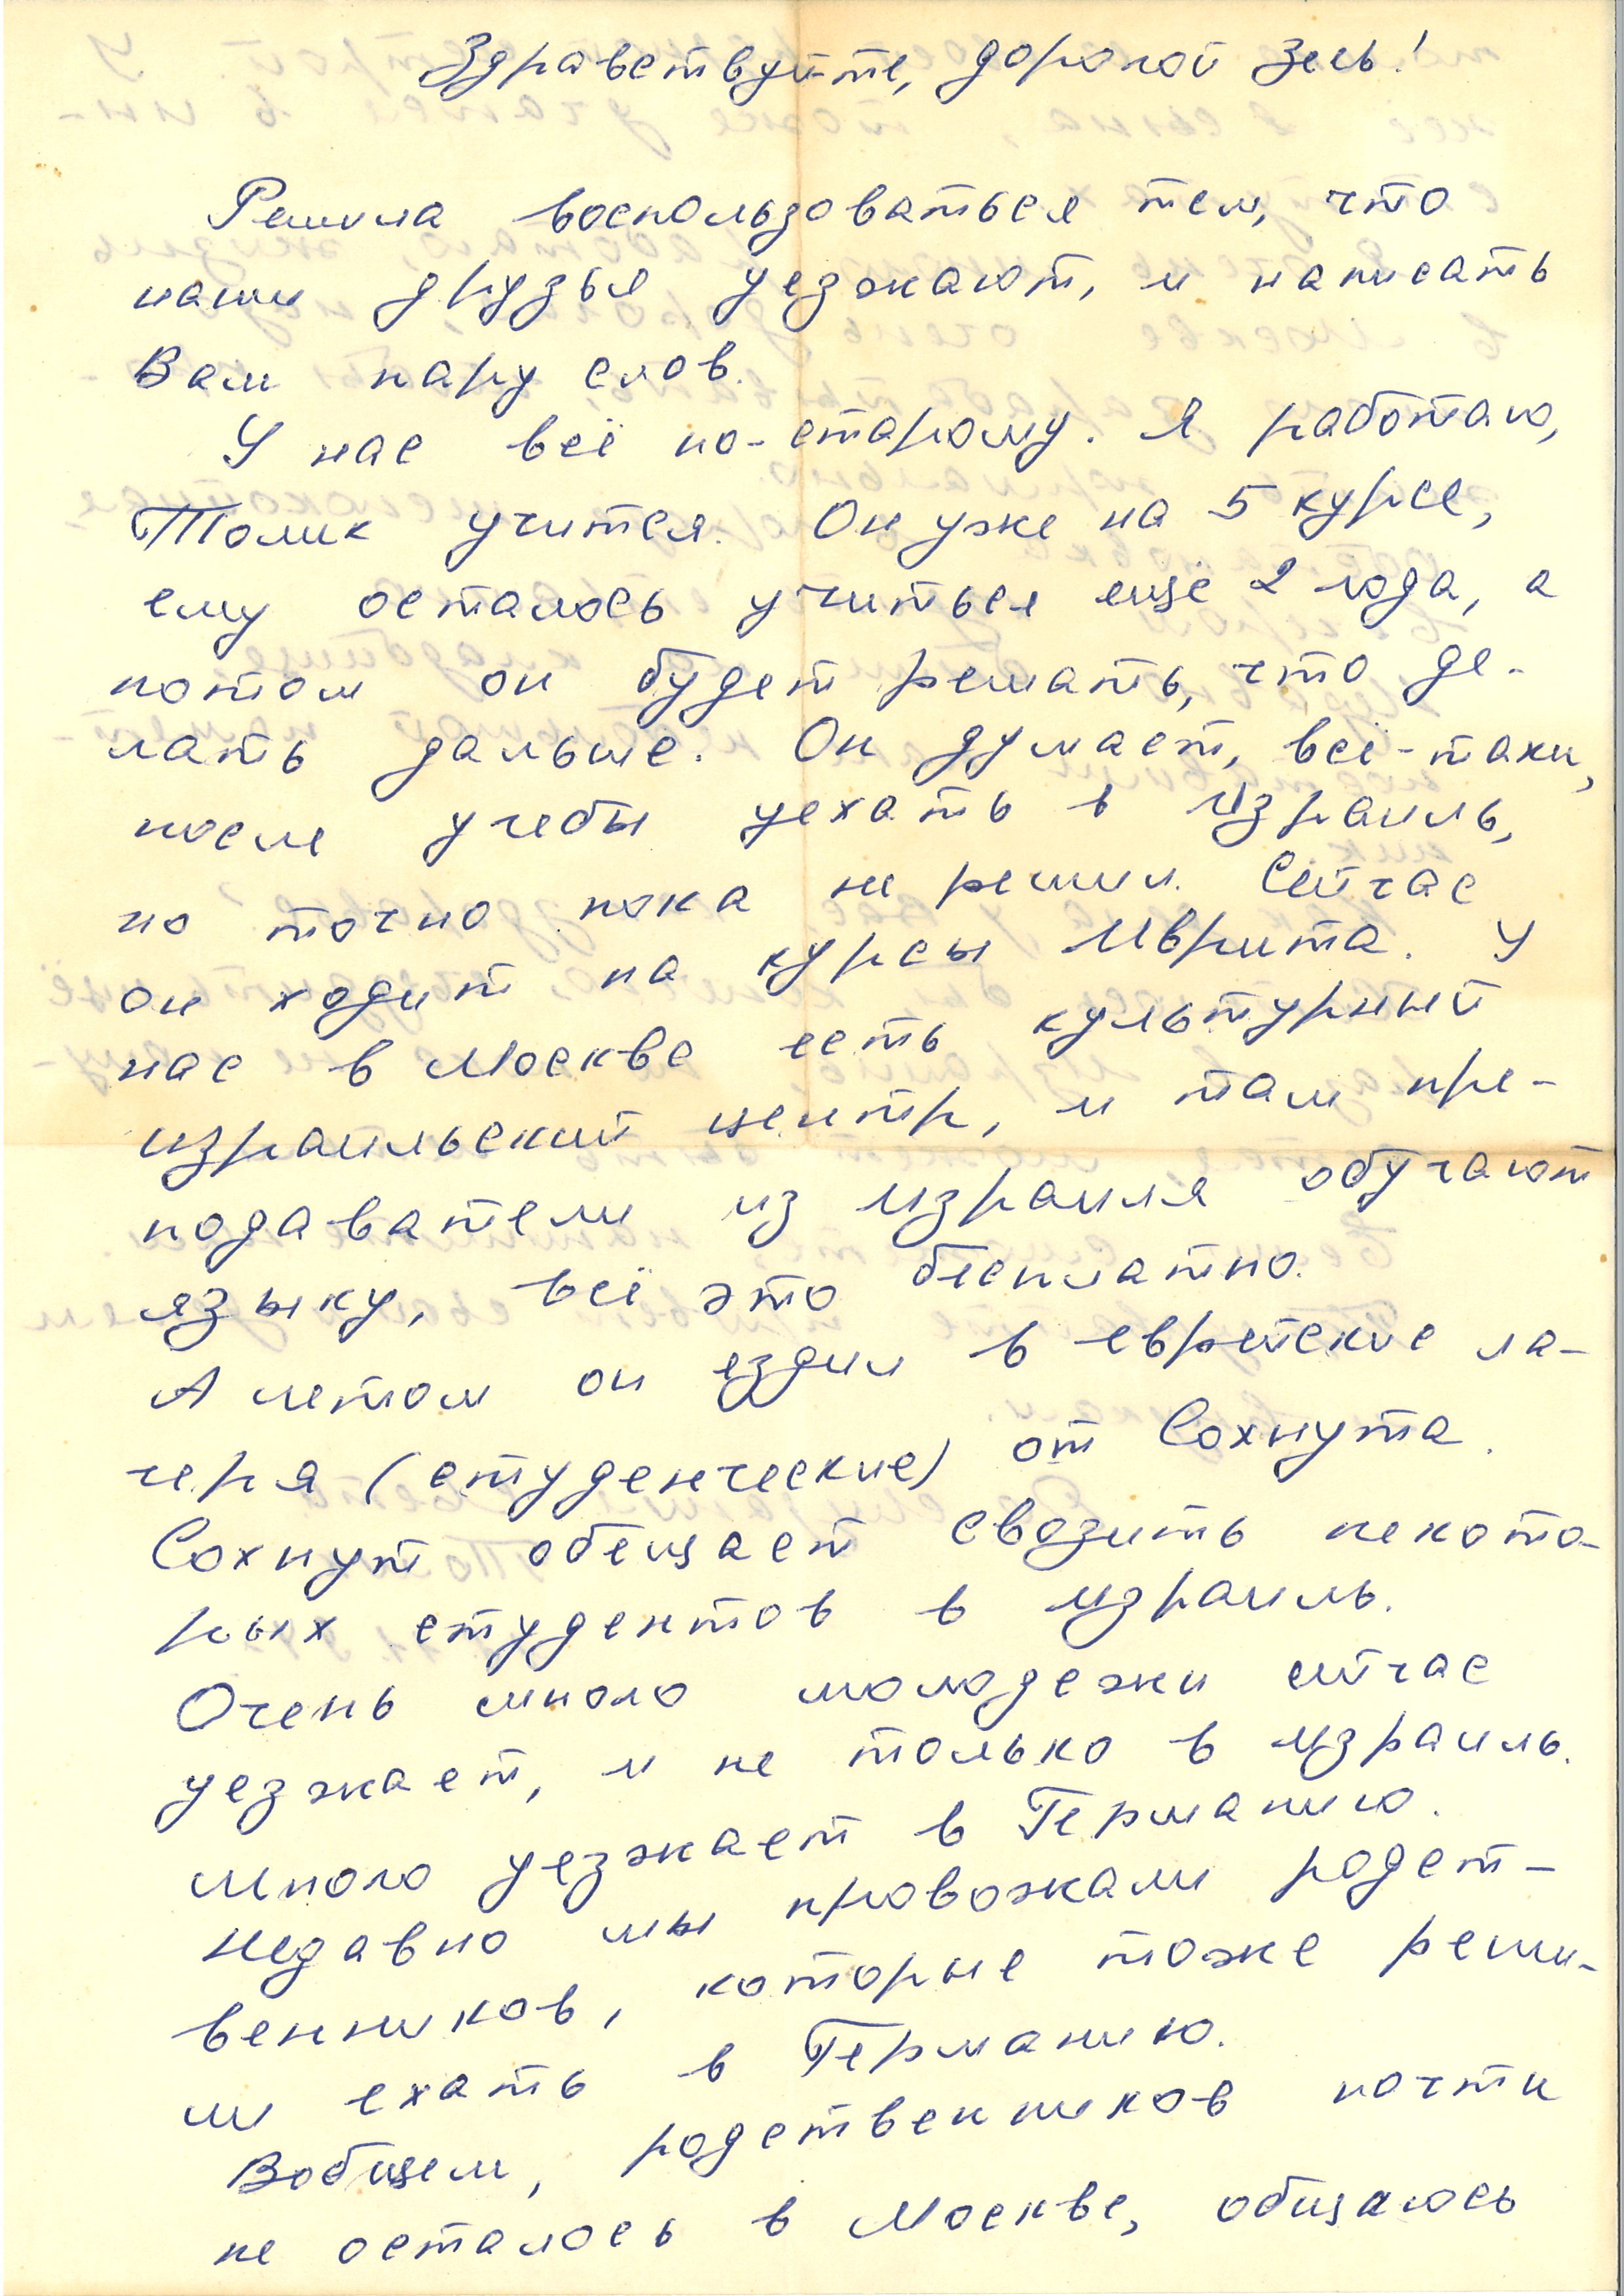 Здравствуйте, дорогой Зесь!
Решила воспользоваться тем, что
наши друзья уезжают, и написать
Вам пару слов.
У нас всё по-старому. Я работаю,
Толик учится. Он уже на 5 курсе,
ему осталось учиться ещё 2 года, а
потом он будет решать, что де-
лать дальше. Он думает, всё-таки,
после учебы уехать в Израиль,
но точно пока не решил. Сейчас
он ходит на курсы Иврита. У
нас в Москве есть культурный
израильский центр, и там пре-
подаватели из Израиля обучают
языку, всё это бесплатно.
А летом он ездил в еврейские ла-
геря (студенческие) от Сохнута.
Сохнут обещает свозить некото-
рых студентов в Израиль.
Очень много молодежи сейчас
уезжает, и не только в Израиль.
Много уезжает в Германию.
Недавно мы провожали родст-
венников, которые тоже реши-
ли ехать в Германию.
Вобщем, родственников почти
не осталось в Москве, общаюсь